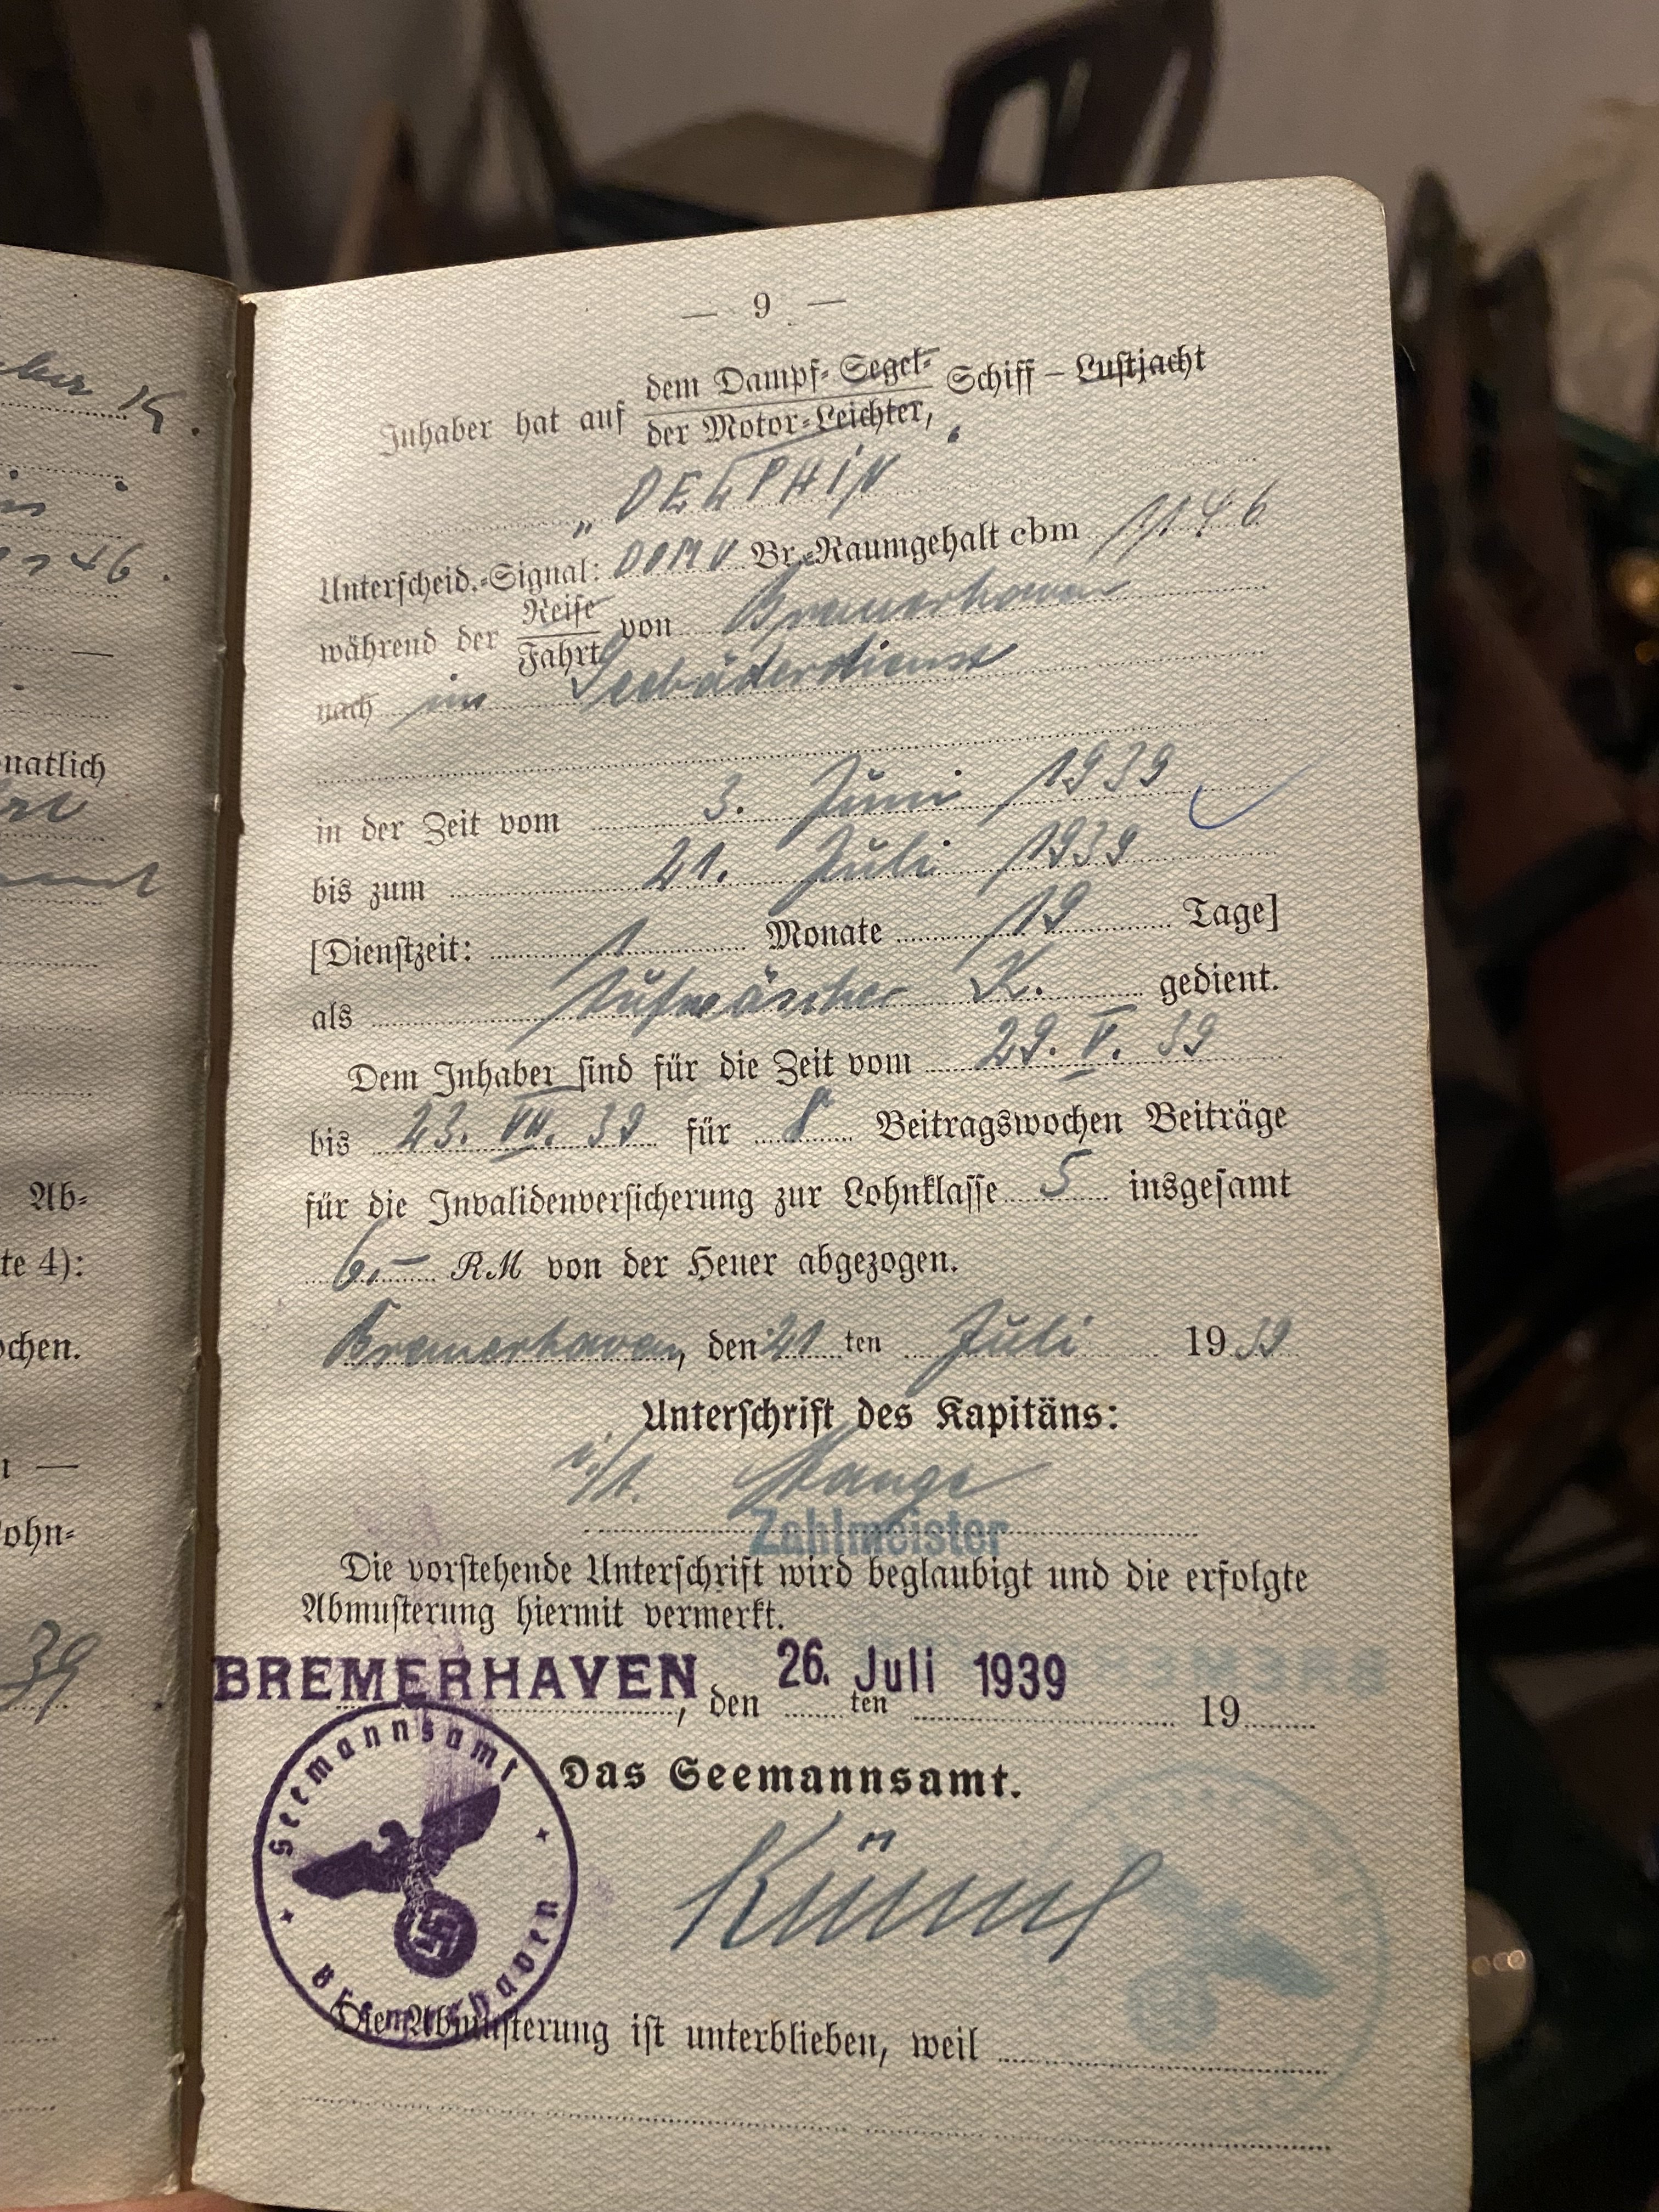 — 9 —
Inhaber hat auf dem Dampf- Segel- Schiff – Lustjacht
der Motor-Leichter,
„ DELPHIN “
Unterscheid.-Signal: DOMU Br.-Raumgehalt cbm
während der Reise Fahrt von Bremerhaven
nach im Seebäderdienst
in der Zeit vom 3. Juni 1939
bis zum 21. Juli 1939
[Dienstzeit: 1 Monate 19 Tage]
als Aufwäscher K. gedient.
Dem Inhaber sind für die Zeit vom 29. V. 39
bis 23. VII. 39 für 8 Beitragswochen Beiträge
für die Invalidenversicherung zur Lohnklasse 5 insgesamt
RM von der Heuer abgezogen.
Bremerhaven, den 21 ten Juli 19 39
Unterschrift des Kapitäns:
Zahlmeister
Die vorstehende Unterschrift wird beglaubigt und die erfolgte
Abmusterung hiermit vermerkt.
BREMERHAVEN, den 26. Juli 1939 ten 19
Das Seemannsamt.
Seemannsamt
Bremerhaven
Die Abmusterung ist unterblieben, weil
natlich
Ab-
te 4):
ochen.
ohn-
39